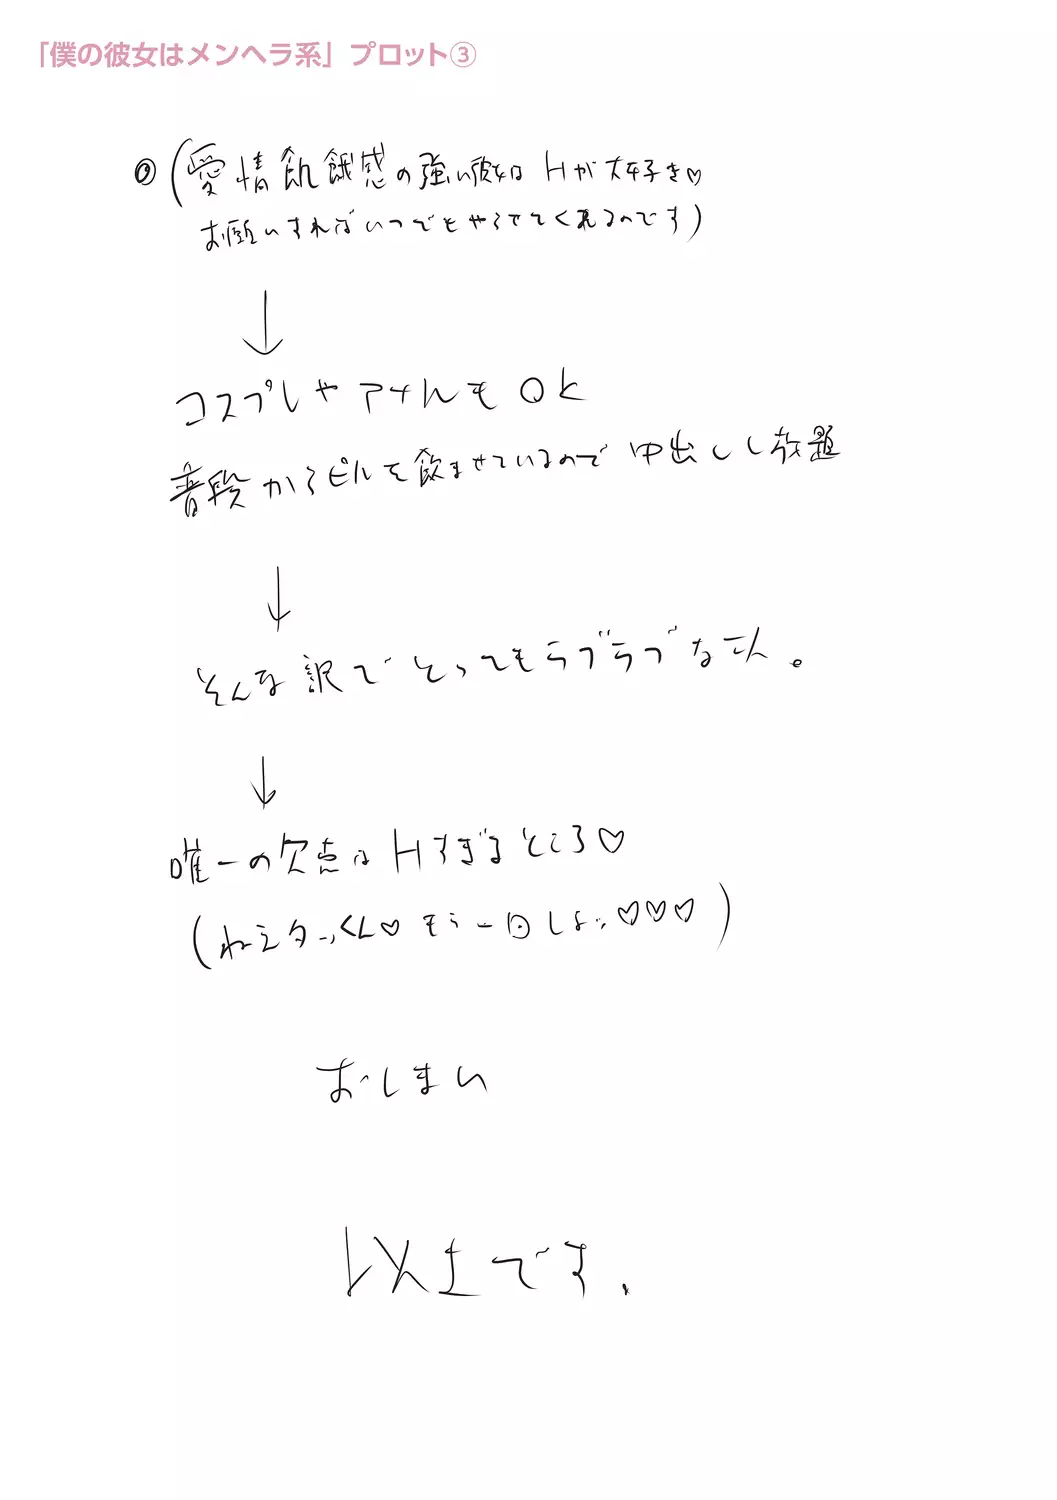 「僕の彼女はメンヘラ系」プロット③
(愛情飢餓感の強い彼女は Hが大好き♡
お願いすればいつでもやらせてくれるのです)
↓
コスプレやアナルもOK
普段からピルを飲ませているので中出しし放題
↓
そんな訳でとってもラブラブな二人。
↓
唯一の欠点はHすぎるところ♡
(ねえタっくん♡もう一回しよっ♡♡♡)
おしまい
以上です。